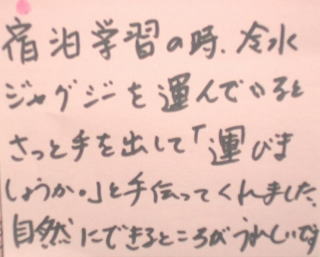 宿泊学習の時、冷水
ジャグジーを運んでいると
さっと手を出して「運びま
しょうか。」と手伝ってくれました。
自然にできるところがうれしいです